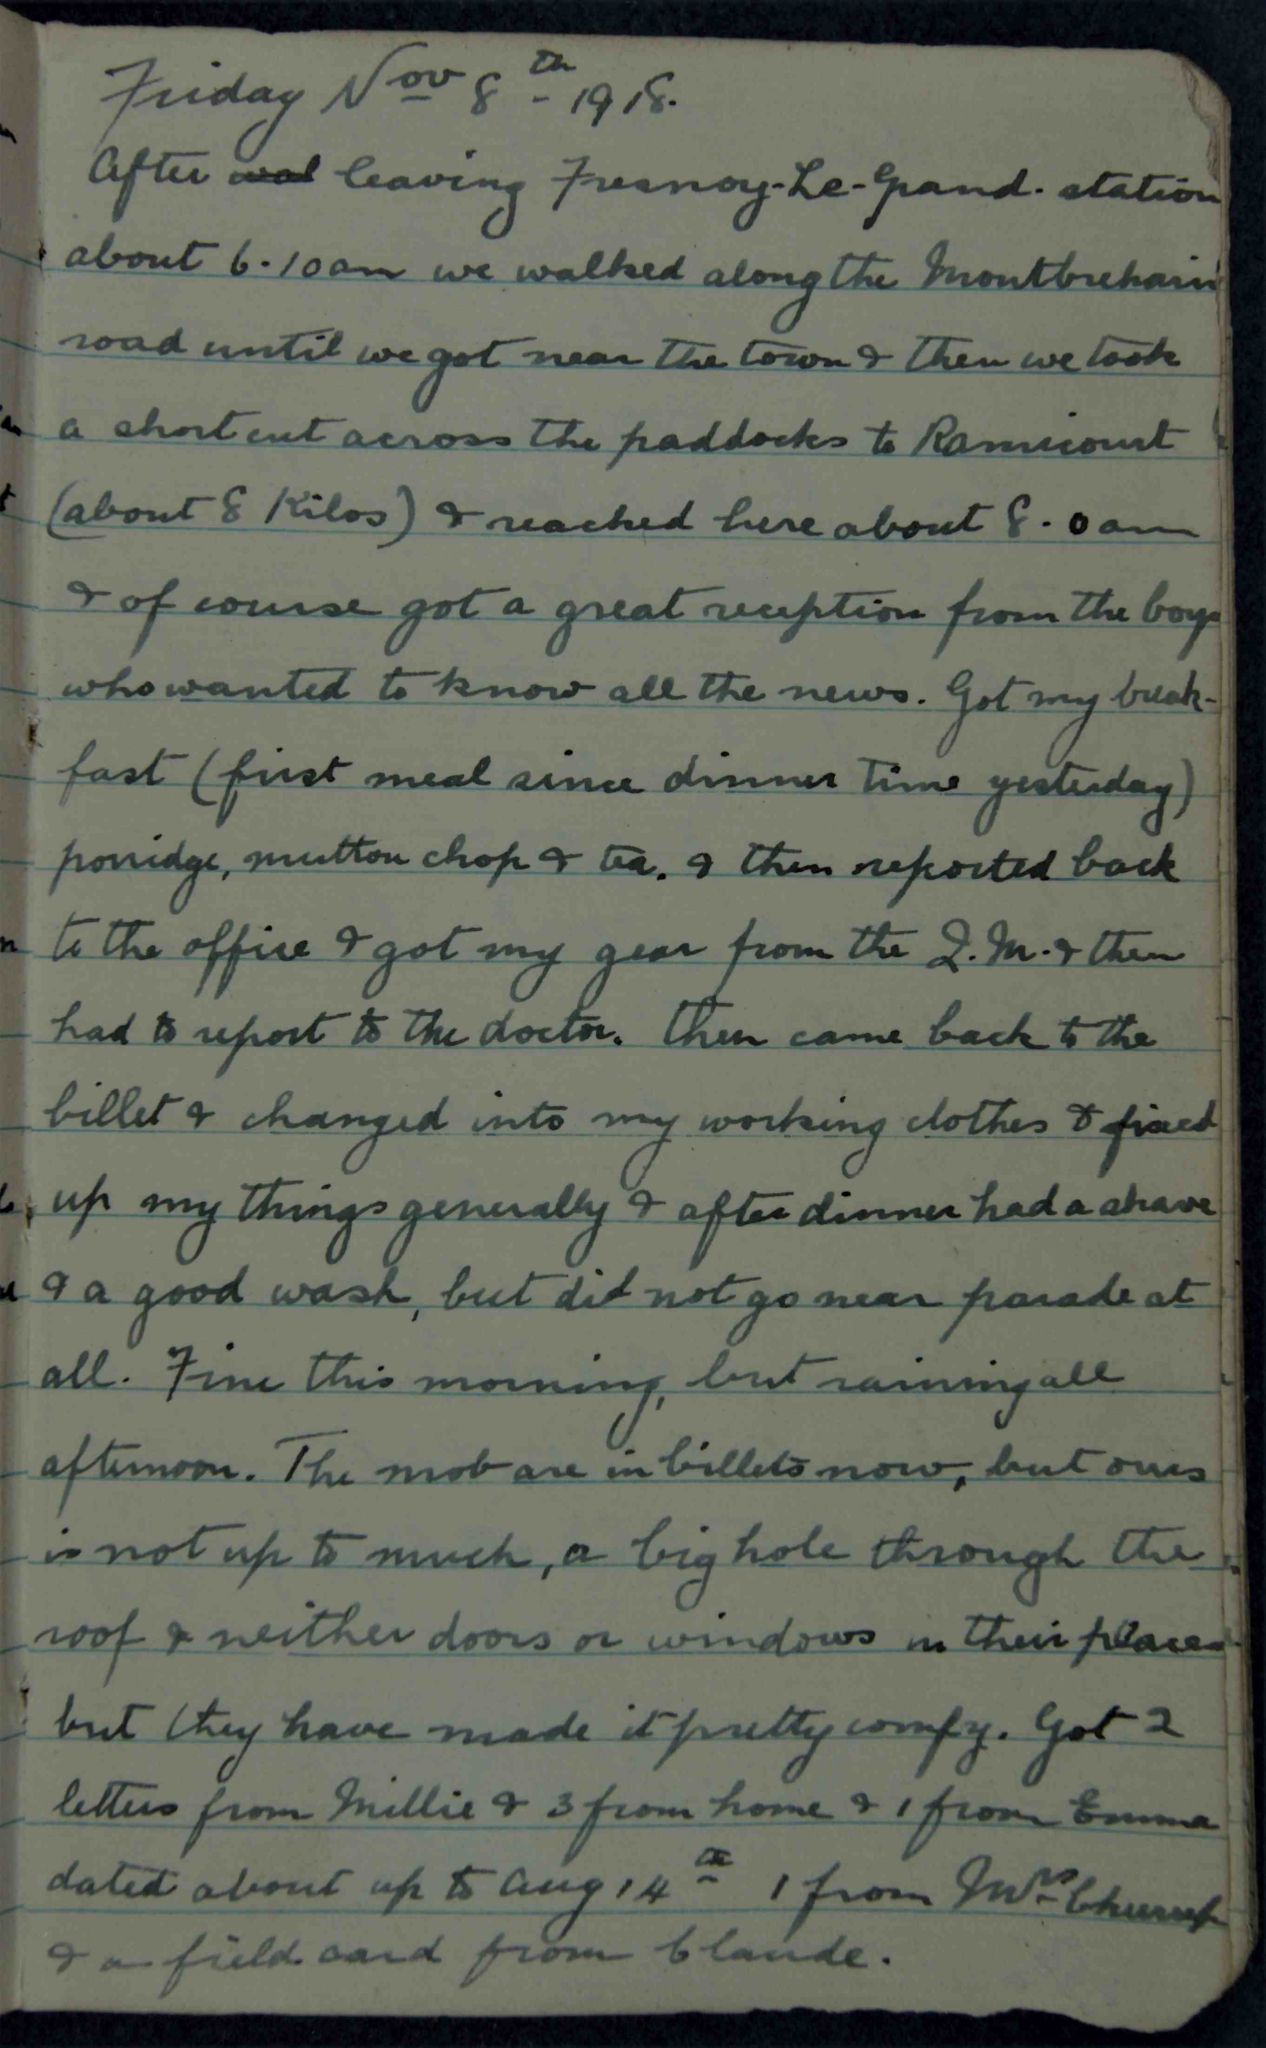 Friday Nov 8th 1918.
After leaving Fresnoy-Le-Grand. station
about 6.10am we walked along the Montbrehain
road until we got near the town & then we took
a short cut across the paddocks to Ramicourt
(about 8 Kilos) & reached here about 8.0am
& of course got a great reception from the boys
who wanted to know all the news. Got my break-
fast (first meal since dinner time yesterday)
porridge, mutton chop & tea. & then reported back
to the office & got my gear from the Q.M. & then
had to report to the doctor. Then came back to the
billet & changed into my working clothes & fixed
up my things generally & after dinner had a shave
& a good wash, but did not go near parade at
all. Fine this morning, but raining all
afternoon. The mob are in billets now, but ours
is not up to much, a big hole through the
roof & neither doors or windows in their places
but they have made it pretty comfy. Got 2
letters from Millie & 3 from home & 1 from Emma
dated about up to Aug 14th 1 from Mrs
& a field card from Claude.